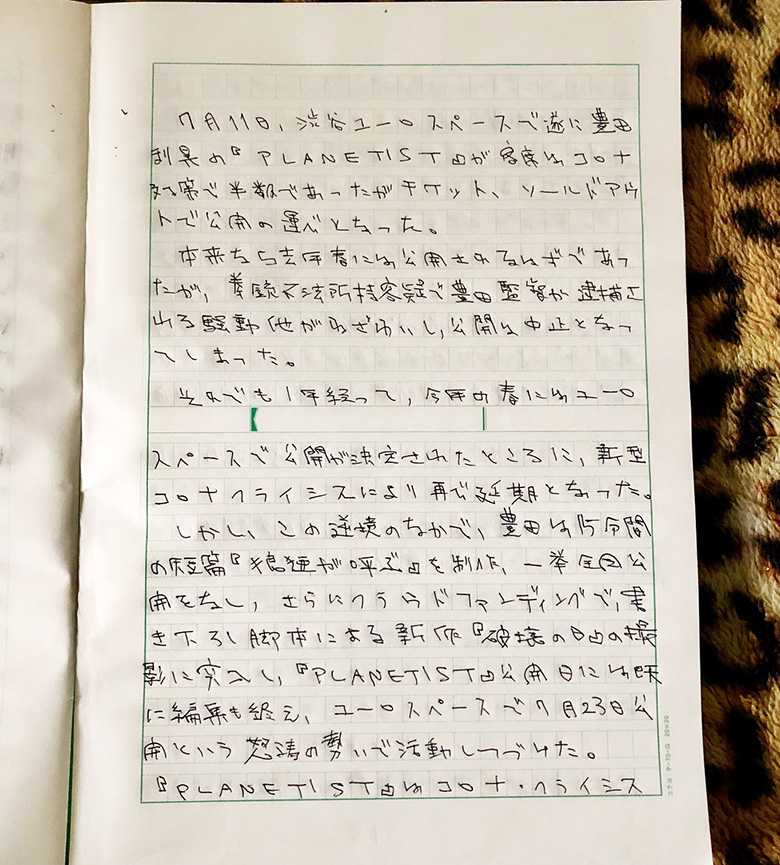 7月11日、渋谷ユーロスペースで遂に豊田
利晃の『PLANETIST』が客席はコロナ
対策で半数であったがチケット、ソールドアウ
トで公開の運びとなった。
本来なら去年春には公開されるはずであっ
たが、拳銃不法所持容疑で豊田監督が逮捕さ
れる騒動他がわざわいし、公開は中止となっ
てしまった。
それでも1年経って、今年の春にはユーロ
スペースで公開が決定されたところに、新型
コロナクライシスにより再び延期となった。
しかし、この逆境のなかで、豊田は15分間
の短篇『狼煙が呼ぶ』を制作、一挙全国公
開をなし、さらにクラウドファンディングで、書
き下ろし脚本による新作『破壊の日』の撮
影に突入し、『PLANETIST』公開日には既
に編集も終え、ユーロスペースで7月23日公
開という怒濤の勢いで活動しつづけた。
『PLANETIST』はコロナ・クライシス